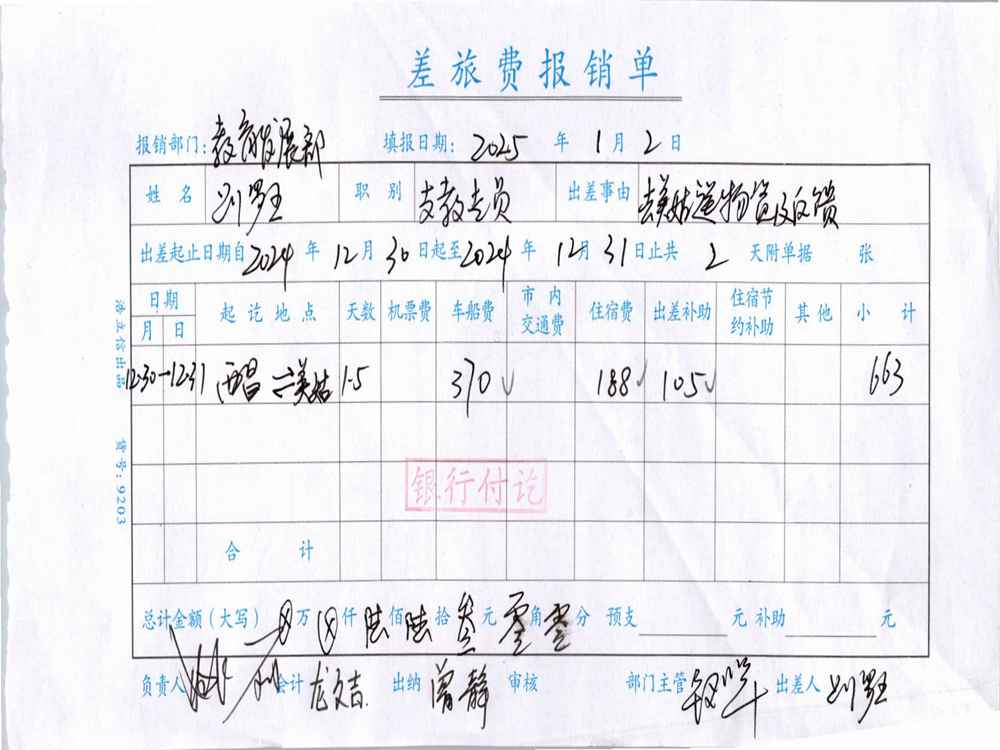 差旅费报销单
报销部门：教育发展部 填报日期：2025 年 1 月 2 日
姓名 刘罗王 职别 支教专员 出差事由 去美姑送物资及反馈
出差起止日期自 2024 年 12 月 30 日起至 2024 年 12 月 31 日止共 2 天附单据 张
日期 起讫地点 天数 机票费 车船费 市内交通费 住宿费 出差补助 住宿节约补助 其他 小计
月 日
12.30→12.31 西昌⇌美姑 1.5 370 188 105 663
银行付讫
合计
总计金额（大写） 万 仟 陆佰 陆拾 叁元 零角 零分 预支 元 补助 元
负责人 会计 龙文吉 出纳 曾静 审核 部门主管 出差人
浩立信出品 货号：9203